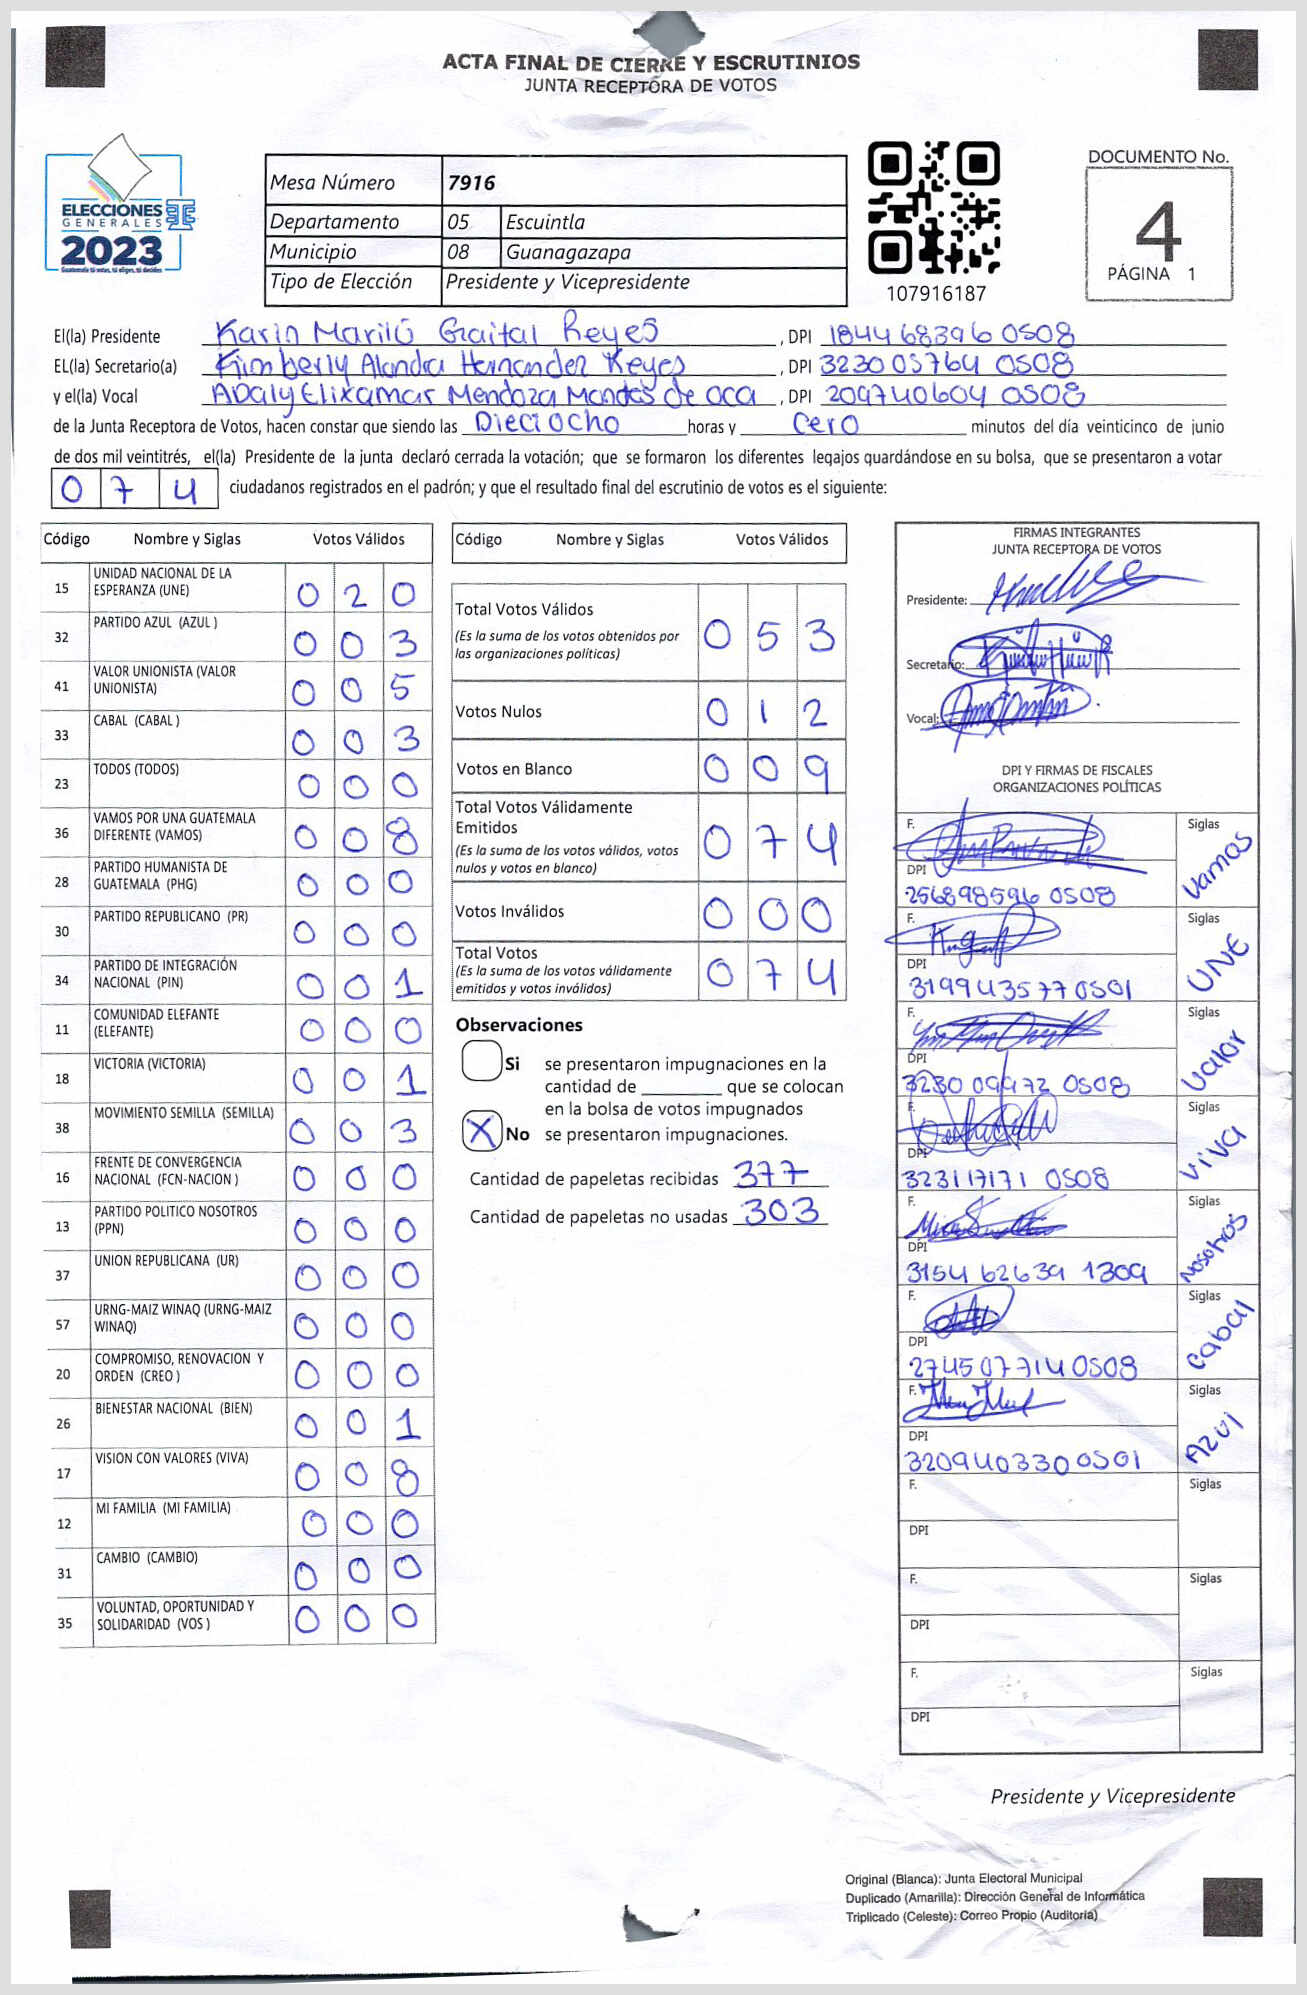 ACTA FINAL DE CIERRE Y ESCRUTINIOS
JUNTA RECEPTORA DE VOTOS
ELECCIONES
GENERALES
2023
Guatemala tú votas, tú eliges, tú decides
Mesa Número 7916
Departamento 05 Escuintla
Municipio 08 Guanagazapa
Tipo de Elección Presidente y Vicepresidente
107916187
DOCUMENTO No.
4
PÁGINA 1
El(la) Presidente Karin Mariló Reyes , DPI 184468396 0508
EL(la) Secretario(a) Kimberly Hernandez Reyes , DPI 323005764 0508
y el(la) Vocal Mendoza de oca , DPI 209740604 0508
de la Junta Receptora de Votos, hacen constar que siendo las Dieciocho horas y Cero minutos del día veinticinco de junio
de dos mil veintitrés, el(la) Presidente de la junta declaró cerrada la votación; que se formaron los diferentes legajos guardándose en su bolsa, que se presentaron a votar
0 7 4 ciudadanos registrados en el padrón; y que el resultado final del escrutinio de votos es el siguiente:
Código Nombre y Siglas Votos Válidos
15 UNIDAD NACIONAL DE LA
ESPERANZA (UNE) 0 2 0
32 PARTIDO AZUL (AZUL ) 0 0 3
41 VALOR UNIONISTA (VALOR
UNIONISTA) 0 0 5
33 CABAL (CABAL ) 0 0 3
23 TODOS (TODOS) 0 0 0
36 VAMOS POR UNA GUATEMALA
DIFERENTE (VAMOS) 0 0 8
28 PARTIDO HUMANISTA DE
GUATEMALA (PHG) 0 0 0
30 PARTIDO REPUBLICANO (PR) 0 0 0
34 PARTIDO DE INTEGRACIÓN
NACIONAL (PIN) 0 0 1
11 COMUNIDAD ELEFANTE
(ELEFANTE) 0 0 0
18 VICTORIA (VICTORIA) 0 0 1
38 MOVIMIENTO SEMILLA (SEMILLA) 0 0 3
16 FRENTE DE CONVERGENCIA
NACIONAL (FCN-NACION ) 0 0 0
13 PARTIDO POLITICO NOSOTROS
(PPN) 0 0 0
37 UNION REPUBLICANA (UR) 0 0 0
57 URNG-MAIZ WINAQ (URNG-MAIZ
WINAQ) 0 0 0
20 COMPROMISO, RENOVACION Y
ORDEN (CREO ) 0 0 0
26 BIENESTAR NACIONAL (BIEN) 0 0 1
17 VISION CON VALORES (VIVA) 0 0 8
12 MI FAMILIA (MI FAMILIA) 0 0 0
31 CAMBIO (CAMBIO) 0 0 0
35 VOLUNTAD, OPORTUNIDAD Y
SOLIDARIDAD (VOS ) 0 0 0
Código Nombre y Siglas Votos Válidos
Total Votos Válidos
(Es la suma de los votos obtenidos por
las organizaciones políticas) 0 5 3
Votos Nulos 0 1 2
Votos en Blanco 0 0 9
Total Votos Válidamente
Emitidos
(Es la suma de los votos válidos, votos
nulos y votos en blanco) 0 7 4
Votos Inválidos 0 0 0
Total Votos
(Es la suma de los votos válidamente
emitidos y votos inválidos) 0 7 4
Observaciones
Si se presentaron impugnaciones en la
cantidad de ________ que se colocan
en la bolsa de votos impugnados
X No se presentaron impugnaciones.
Cantidad de papeletas recibidas 377
Cantidad de papeletas no usadas 303
FIRMAS INTEGRANTES
JUNTA RECEPTORA DE VOTOS
Presidente:
Secretario:
Vocal:
DPI Y FIRMAS DE FISCALES
ORGANIZACIONES POLÍTICAS
F. Siglas Vamos
DPI
256898596 0508
F. Siglas UNE
DPI
319943577 0501
F. Siglas Valor
DPI
3230 09972 0508
F. Siglas VIVA
DPI
323117171 0508
F. Siglas Nosotros
DPI
3154 62639 1309
F. Siglas Cabal
DPI
274507714 0508
F. Siglas Azul
DPI
320940330 0501
F. Siglas
DPI
F. Siglas
DPI
F. Siglas
DPI
Presidente y Vicepresidente
Original (Blanca): Junta Electoral Municipal
Duplicado (Amarilla): Dirección General de Informática
Triplicado (Celeste): Correo Propio (Auditoría)